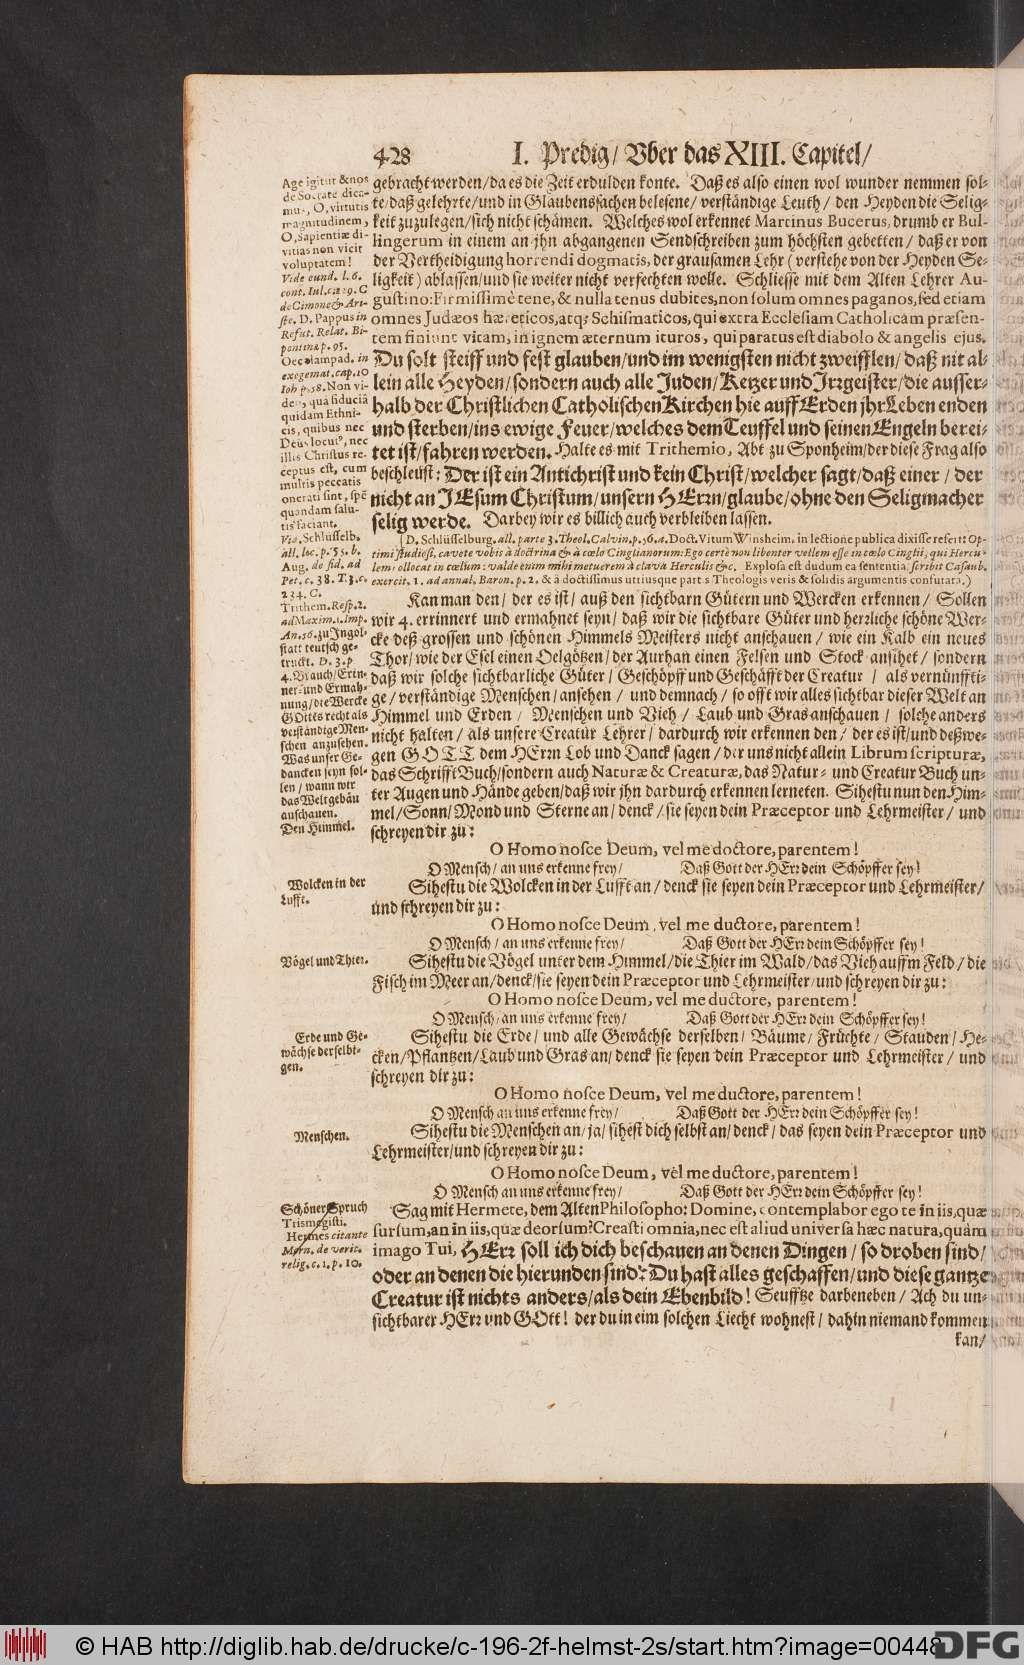 428 I. Predig/ Vber das XIII. Capitel/
gebracht werden/da es die Zeit erdulden konte. Daß es also einen wol wunder nemmen sol-
te/daß gelehrte/und in Glaubenssachen belesene/verständige Leuth/ den Heyden die Selig-
keit zuzulegen/sich nicht schämen. Welches wol erkennet Martinus Bucerus, drumb er Bul-
lingerum in einem an jhn abgangenen Sendschreiben zum höchsten gebetten/ daß er von
der Vertheidigung horrendi dogmatis, der grausamen Lehr (verstehe von der Heyden Se-
ligkeit) ablassen/und sie weiter nicht verfechten wolle. Schliesse mit dem Alten Lehrer Au-
gustino: Firmissimè tene, & nullatenus dubites, non solum omnes paganos, sed etiam
omnes Judæos hæreticos, atq; Schismaticos, qui extra Ecclesiam Catholicam præsen-
tem finiunt vitam, in ignem æternum ituros, qui paratus est diabolo & angelis ejus.
Du solt steiff und fest glauben/und im wenigsten nicht zweifflen/ daß nit al-
lein alle Heyden/sondern auch alle Juden/Ketzer und Irrgeister/die ausser-
halb der Christlichen Catholischen Kirchen hie auff Erden jhr Leben enden
und sterben/ins ewige Feuer/welches dem Teuffel und seinen Engeln berei-
tet ist/fahren werden. Halte es mit Trithemio, Abt zu Sponheim/der diese Frag also
beschleust: Der ist ein Antichrist und kein Christ/welcher sagt/daß einer / der
nicht an JEsum Christum/unsern HErrn/glaube/ohne den Seligmacher
selig werde. Darbey wir es billich auch verbleiben lassen.
(D. Schlüsselburg. all. parte 3. Theol. Calvin. p. 36. a. Doct. Vitum Winsheim. in lectione publica dixisse refert: Op-
timi studiosi, cavete vobis à doctrina & à cœlo Cinglianorum: Ego certè non libenter vellem esse in cœlo Cinglii, qui Hercu-
lem collocat in cœlum: valde enim mihi metuerem à clava Herculis &c. Explosa est dudum ea sententia, scribit Casaub.
exercit. 1. ad annal. Baron. p. 2. & à doctissimus utriusque partis Theologis veris & solidis argumentis confutata.)
Kan man den/ der es ist/ auß den sichtbarn Gütern und Wercken erkennen/ Sollen
wir 4. errinnert und ermahnet seyn/ daß wir die sichtbare Güter und herzliche schöne Wer-
cke deß grossen und schönen Himmels Meisters nicht anschauen / wie ein Kalb ein neues
Thor/wie der Esel einen Oelgötzen/der Aurhan einen Felsen und Stock ansihet/ sondern
daß wir solche sichtbarliche Güter/ Geschöpff und Geschäfft der Creatur / als vernünffti-
ge/verständige Menschen/ansehen / und demnach/ so offt wir alles sichtbar dieser Welt an
Himmel und Erden / Menschen und Vieh / Laub und Gras anschauen / solche anders
nicht halten/ als unsere Creatur Lehrer/ dardurch wir erkennen den/ der es ist/und deßwe-
gen GOTT dem HErrn Lob und Danck sagen/ der uns nicht allein Librum scripturæ,
das Schrifft Buch/sondern auch Naturæ & Creaturæ, das Natur- und Creatur Buch un-
ter Augen und Hände geben/daß wir jhn dardurch erkennen lerneten. Sihestu nun den Him-
mel/Sonn/Mond und Sterne an/ denck / sie seyen dein Præceptor und Lehrmeister/ und
schreyen dir zu:
O Homo nosce Deum, vel me doctore, parentem!
O Mensch/ an uns erkenne frey/ Daß Gott der HErr dein Schöpffer sey!
Sihestu die Wolcken in der Lufft an/ denck sie seyen dein Præceptor und Lehrmeister/
und schreyen dir zu:
O Homo nosce Deum, vel me ductore, parentem!
O Mensch/ an uns erkenne frey/ Daß Gott der HErr dein Schöpffer sey!
Sihestu die Vögel unter dem Himmel/die Thier im Wald/das Vieh auffm Feld/ die
Fisch im Meer an/denck/sie seyen dein Præceptor und Lehrmeister/und schreyen dir zu:
O Homo nosce Deum, vel me ductore, parentem!
O Mensch/ an uns erkenne frey/ Daß Gott der HErr dein Schöpffer sey!
Sihestu die Erde/ und alle Gewächse derselben/ Bäume/ Früchte/ Stauden/ He-
cken/Pflantzen/Laub und Gras an/denck sie seyen dein Præceptor und Lehrmeister/ und
schreyen dir zu:
O Homo nosce Deum, vel me ductore, parentem!
O Mensch an uns erkenne frey/ Daß Gott der HErr dein Schöpffer sey!
Sihestu die Menschen an/ja/sihest dich selbst an/denck/ das seyen dein Præceptor und
Lehrmeister/und schreyen dir zu:
O Homo nosce Deum, vel me ductore, parentem!
O Mensch an uns erkenne frey/ Daß Gott der HErr dein Schöpffer sey!
Sag mit Hermete, dem Alten Philosopho: Domine, contemplabor ego te in iis, quæ
sursum, an in iis, quæ deorsum? Creasti omnia, nec est aliud universa hæc natura, quàm
imago Tui, HErr soll ich dich beschauen an denen Dingen/ so droben sind/
oder an denen die hierunden sind? Du hast alles geschaffen/und diese gantze
Creatur ist nichts anders/als dein Ebenbild! Seufftze darbeneben/ Ach du un-
sichtbarer HErr und GOtt! der du in eim solchen Liecht wohnest/ dahin niemand kommen
kan/
Age igitur & nos
de Socrate dica-
mus, O, virtutis
magnitudinem,
O, sapientiæ di-
vitias non vicit
voluptatem!
Vide eund. l. 6.
cont. Iul. c. 219. C
de Cimone & Ari-
ste. D. Pappus in
Refut. Relat. Bi-
pontina p. 95.
Oecolampad. in
exegemat. cap. 10
Iob p. 58. Non vi-
deo, quâ fiduciâ
quidam Ethni-
cis, quibus nec
Deus locut⁹, nec
illis Christus re-
ceptus est, cum
multis peccatis
onerati sint, spē
quandam salu-
tis faciant.
Vid. Schlüsselb.
all. loc. p. 55. b.
Aug. de fid. ad
Pet. c. 38. T. 3. c.
234. C.
Trithem. Resp. 2.
ad Maxim. 1. Imp.
An. 56. zu Ingol-
statt teutsch ge-
truckt. D. 3. p
4. Brauch/Erin-
ner- und Ermah-
nung/die Wercke
GOttes recht als
verständige Men-
schen anzusehen.
Was unser Ge-
dancken seyn sol-
len / wann wir
das Weltgebäu
anschauen.
Den Himmel.
Wolcken in der
Lufft.
Vögel und Thier.
Erde und Ge-
wächse derselbi-
gen.
Menschen.
Schöner Spruch
Trismegisti.
Hermes citante
Morn. de verit.
relig. c. 1. p. 10.
© HAB http://diglib.hab.de/drucke/c-196-2f-helmst-2s/start.htm?image=00448
DFG